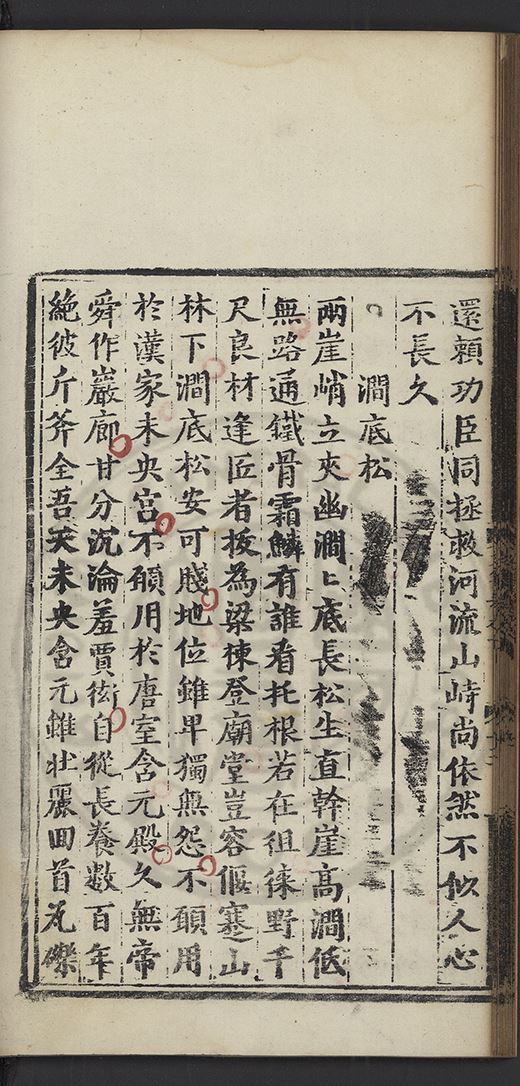 還賴功臣同拯救河流山峙尚依然不似人心
不長久
澗底松
兩崖峭立夾幽澗〻底長松生直幹崖高澗低
無路通鐵骨霜鱗有誰看托根若在徂徠野千
尺良材逢匠者拔為梁棟登廟堂豈容偃蹇山
林下澗底松安可賤地位雖卑獨無怨不願用
於漢家未央宮不願用於唐室含元殿久無帝
舜作巖廊甘分沉淪羞賈衒自從長養數百年
絶彼斤斧全吾天未央含元雖壯麗回首瓦礫